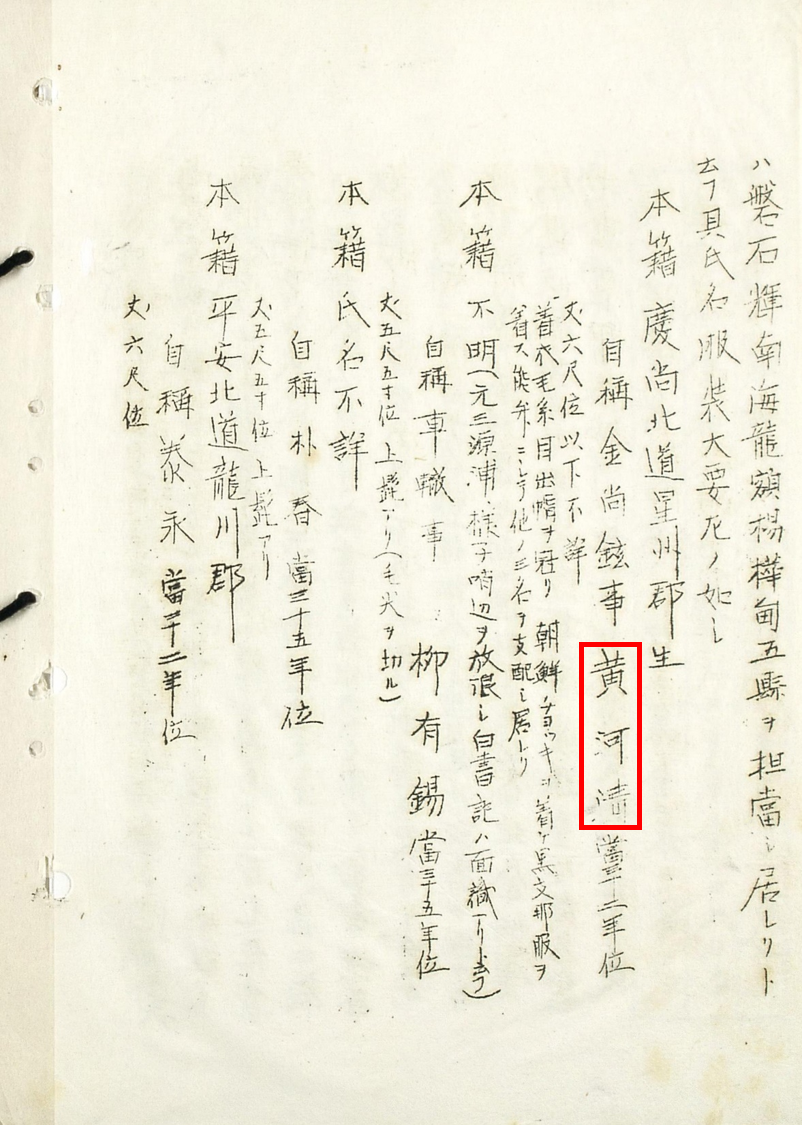 ハ磐石輝南海龍額楊樺甸五縣ヲ担當シ居レリト
云フ具氏名服装大要左ノ如シ
本籍 慶尚北道星州郡生
自稱 金尚鉉事 黄河清 當三十二年位
丈六尺位以下不詳
着衣毛糸目出帽ヲ冠リ 朝鮮チヨツキヲ着ケ黒支那服ヲ
着ス能弁ニシテ他ノ三名ヲ支配シ居レリ
本籍 不明(元三源浦様子哨辺ヲ放浪シ白書記ハ面識アリト云フ)
自稱車轍事 柳有錫 當三十五年位
丈五尺五寸位 上髭アリ(毛尖ヲ切ル)
本籍 氏名不詳
自稱 朴春 當三十五年位
丈五尺五寸位 上髭アリ
本籍 平安北道龍川郡
自稱 泰永 當三十二年位
丈六尺位